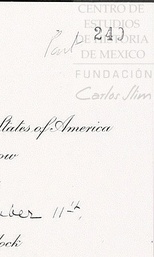 CENTRO DE
ESTUDIOS
DE HISTORIA
DE MEXICO
240
FUNDACIÓN
Carlos Slim
States of America
ber 11th,
lock